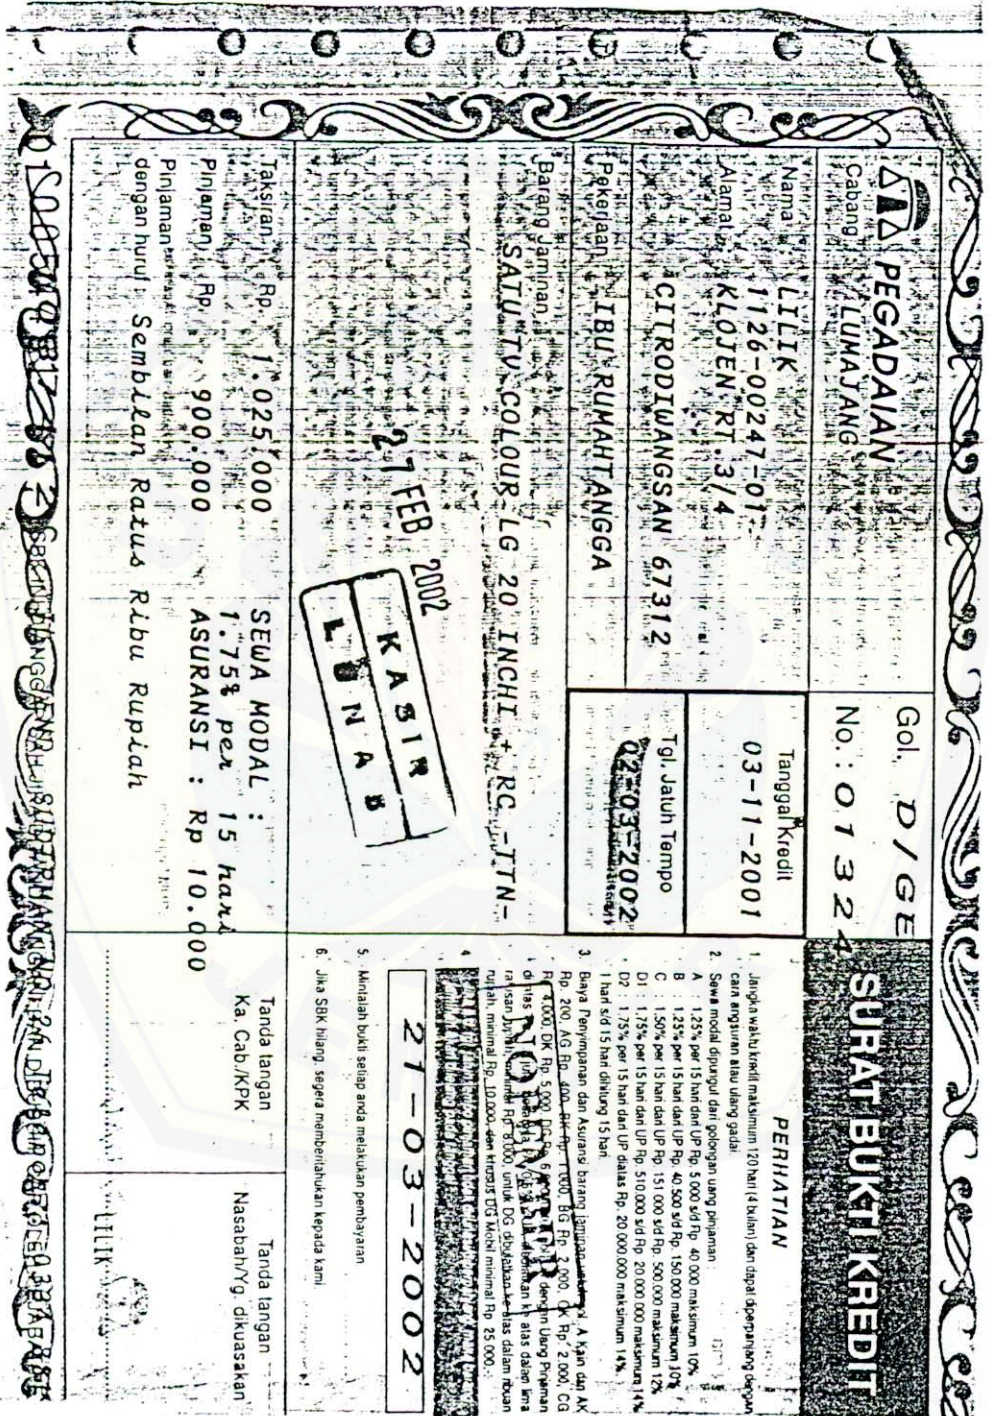 PEGADAIAN
Cabang : LUMAJANG
Gol. D/GE
No. : 01324
SURAT BUKTI KREDIT
Nama : LILIK
1126-00247-01
Alamat : KLOJEN RT.3/4
CITRODIWANGSAN 67312
Pekerjaan : IBU RUMAHTANGGA
Tanggal Kredit
03-11-2001
Tgl. Jatuh Tempo
02-03-2002
Barang Jaminan :
SATU TV COLOUR LG 20 INCHI + RC -TTN-
27 FEB 2002
KASIR
LUNAS
Taksiran : Rp. 1.025.000
Pinjaman : Rp. 900.000
SEWA MODAL :
1.75% per 15 hari
ASURANSI : Rp 10.000
Pinjaman
dengan huruf : Sembilan Ratus Ribu Rupiah
PERHATIAN
1. Jangka waktu kredit maksimum 120 hari (4 bulan) dan dapat diperpanjang dengan
cara angsuran atau ulang gadai.
2. Sewa modal dipungut dari golongan uang pinjaman :
A : 1.25% per 15 hari dari UP Rp. 5.000 s/d Rp. 40.000 maksimum 10%
B : 1.25% per 15 hari dari UP Rp. 40.500 s/d Rp. 150.000 maksimum 10%
C : 1.50% per 15 hari dari UP Rp. 151.000 s/d Rp. 500.000 maksimum 12%
D1 : 1.75% per 15 hari dari UP Rp. 510.000 s/d Rp. 20.000.000 maksimum 14%
D2 : 1.75% per 15 hari dari UP diatas Rp. 20.000.000 maksimum 14%
1 hari s/d 15 hari dihitung 15 hari.
3. Biaya Penyimpanan dan Asuransi barang jaminan A Kain dan AK
Rp. 200, AG Rp. 400, BK Rp. 1.000, BG Rp. 2.000, CK Rp. 2.000, CG
Rp. 4.000, DK Rp. 5.000, DG Rp. 6 dengan Uang Pinjaman
ke atas dalam lima
ratusan rupiah, minimal Rp. 8.000, untuk DG dibulatkan ke atas dalam ribuan
rupiah, minimal Rp. 10.000, dan khusus DG Mobil minimal Rp. 25.000,-
4.
21-03-2002
5. Mintalah bukti setiap anda melakukan pembayaran.
6. Jika SBK hilang, segera memberitahukan kepada kami.
Tanda tangan
Ka. Cab./KPK
Tanda tangan
Nasabah/Yg. dikuasakan
LILIK